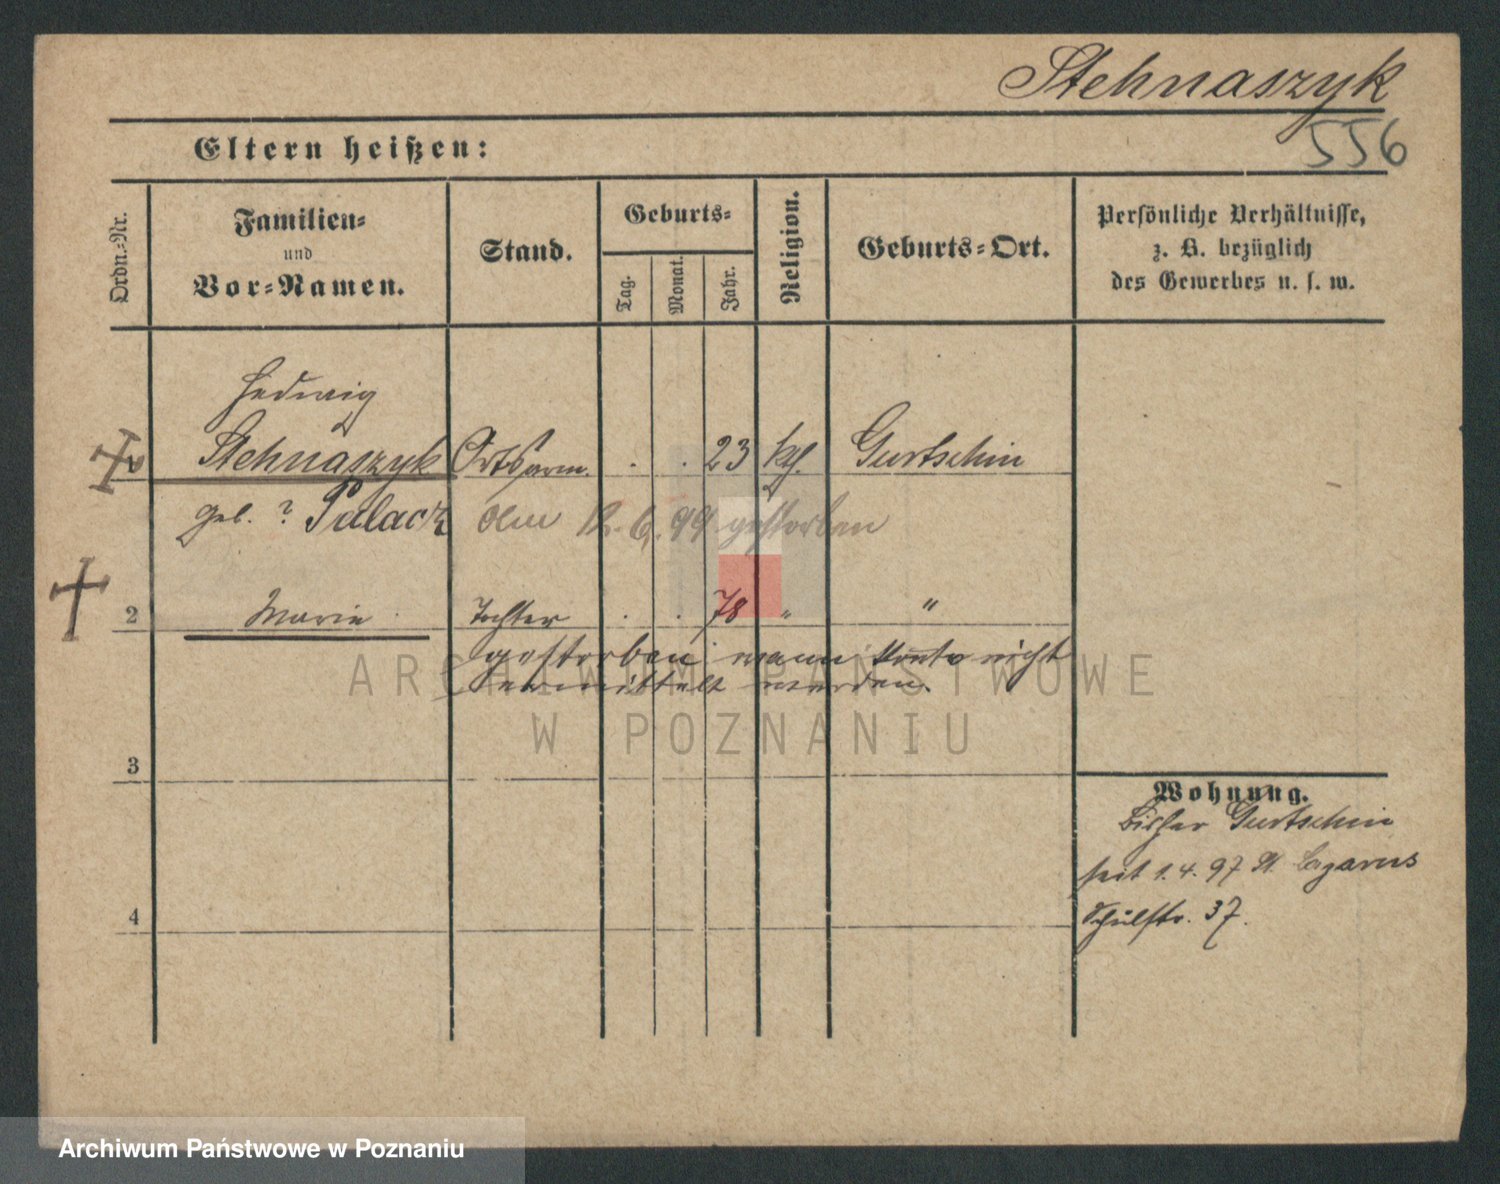 Stehnaszyk
556
Eltern heißen:
Ordn.-Nr.
Familien-
und
Vor-Namen.
Stand.
Geburts-
Tag.
Monat.
Jahr.
Religion.
Geburts-Ort.
Persönliche Verhältnisse,
z. B. bezüglich
des Gewerbes u. s. w.
Hedwig
Stehnaszyk Ortsarm. . . 23 kth. Gurtschin
geb. ? Palacz am 12. 6. 99 gestorben
2 Marie Tochter . . 78 " "
gestorben wann konte nicht
ermittelt werden.
3
4
Wohnung.
bisher Gurtschin
seit 1.4.97 St. Lazarus
Schulstr. 37.
ARCHIWUM PAŃSTWOWE
W POZNANIU
Archiwum Państwowe w Poznaniu